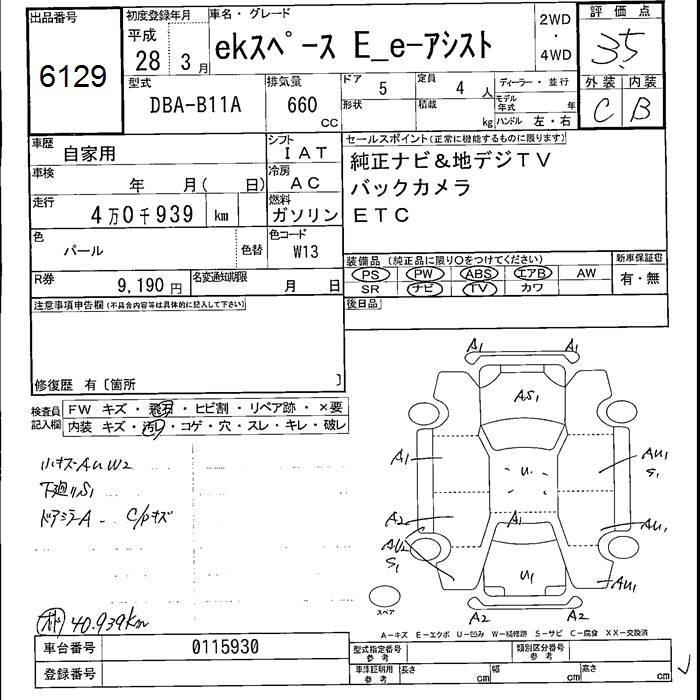 出品番号
6129
初度登録年月
平成
28 3月
車名・グレード
ekスペース E_e-アシスト
2WD
・
4WD
評価点
3.5
外装 内装
C B
型式
DBA-B11A
排気量
660
cc
ドア
5
定員
4 人
形状
積載
kg
ディーラー・並行
モデル年式 年
ハンドル 左・右
車歴
自家用
シフト
IAT
車検
年 月( 日)
冷房
AC
走行
4万0千939 km
燃料
ガソリン
色
パール
色替
色コード
W13
R券
9,190円
名変通知期限
月 日
セールスポイント(正常に機能するものに限ります)
純正ナビ&地デジTV
バックカメラ
ETC
装備品 (純正品に限り○をつけてください)
新車保証書
PS PW ABS エアB AW
有・無
SR ナビ TV カワ
後日品
注意事項申告欄(不具合内容等は具体的に記入して下さい)
修復歴 有〔箇所 〕
検査員
記入欄
FW キズ・飛石・ヒビ割・リペア跡・×要
内装 キズ・汚れ・コゲ・穴・スレ・キレ・破レ
小キズ-AU.W2
下廻りS1
ドアミラーA - C/Pキズ
40.939km
A1 A1
AS1
A1
U.
AU1
S1
A2
A1
AU1
AU2
S1
U1
AU1
A2 A2
スペア
A-キズ E-エクボ U-凹み W-補修跡 S-サビ C-腐食 XX-交換済
車台番号
0115930
登録番号
型式指定番号
参考
類別区分番号
参考
車庫証明用
参考
長さ cm
幅 cm
高さ cm